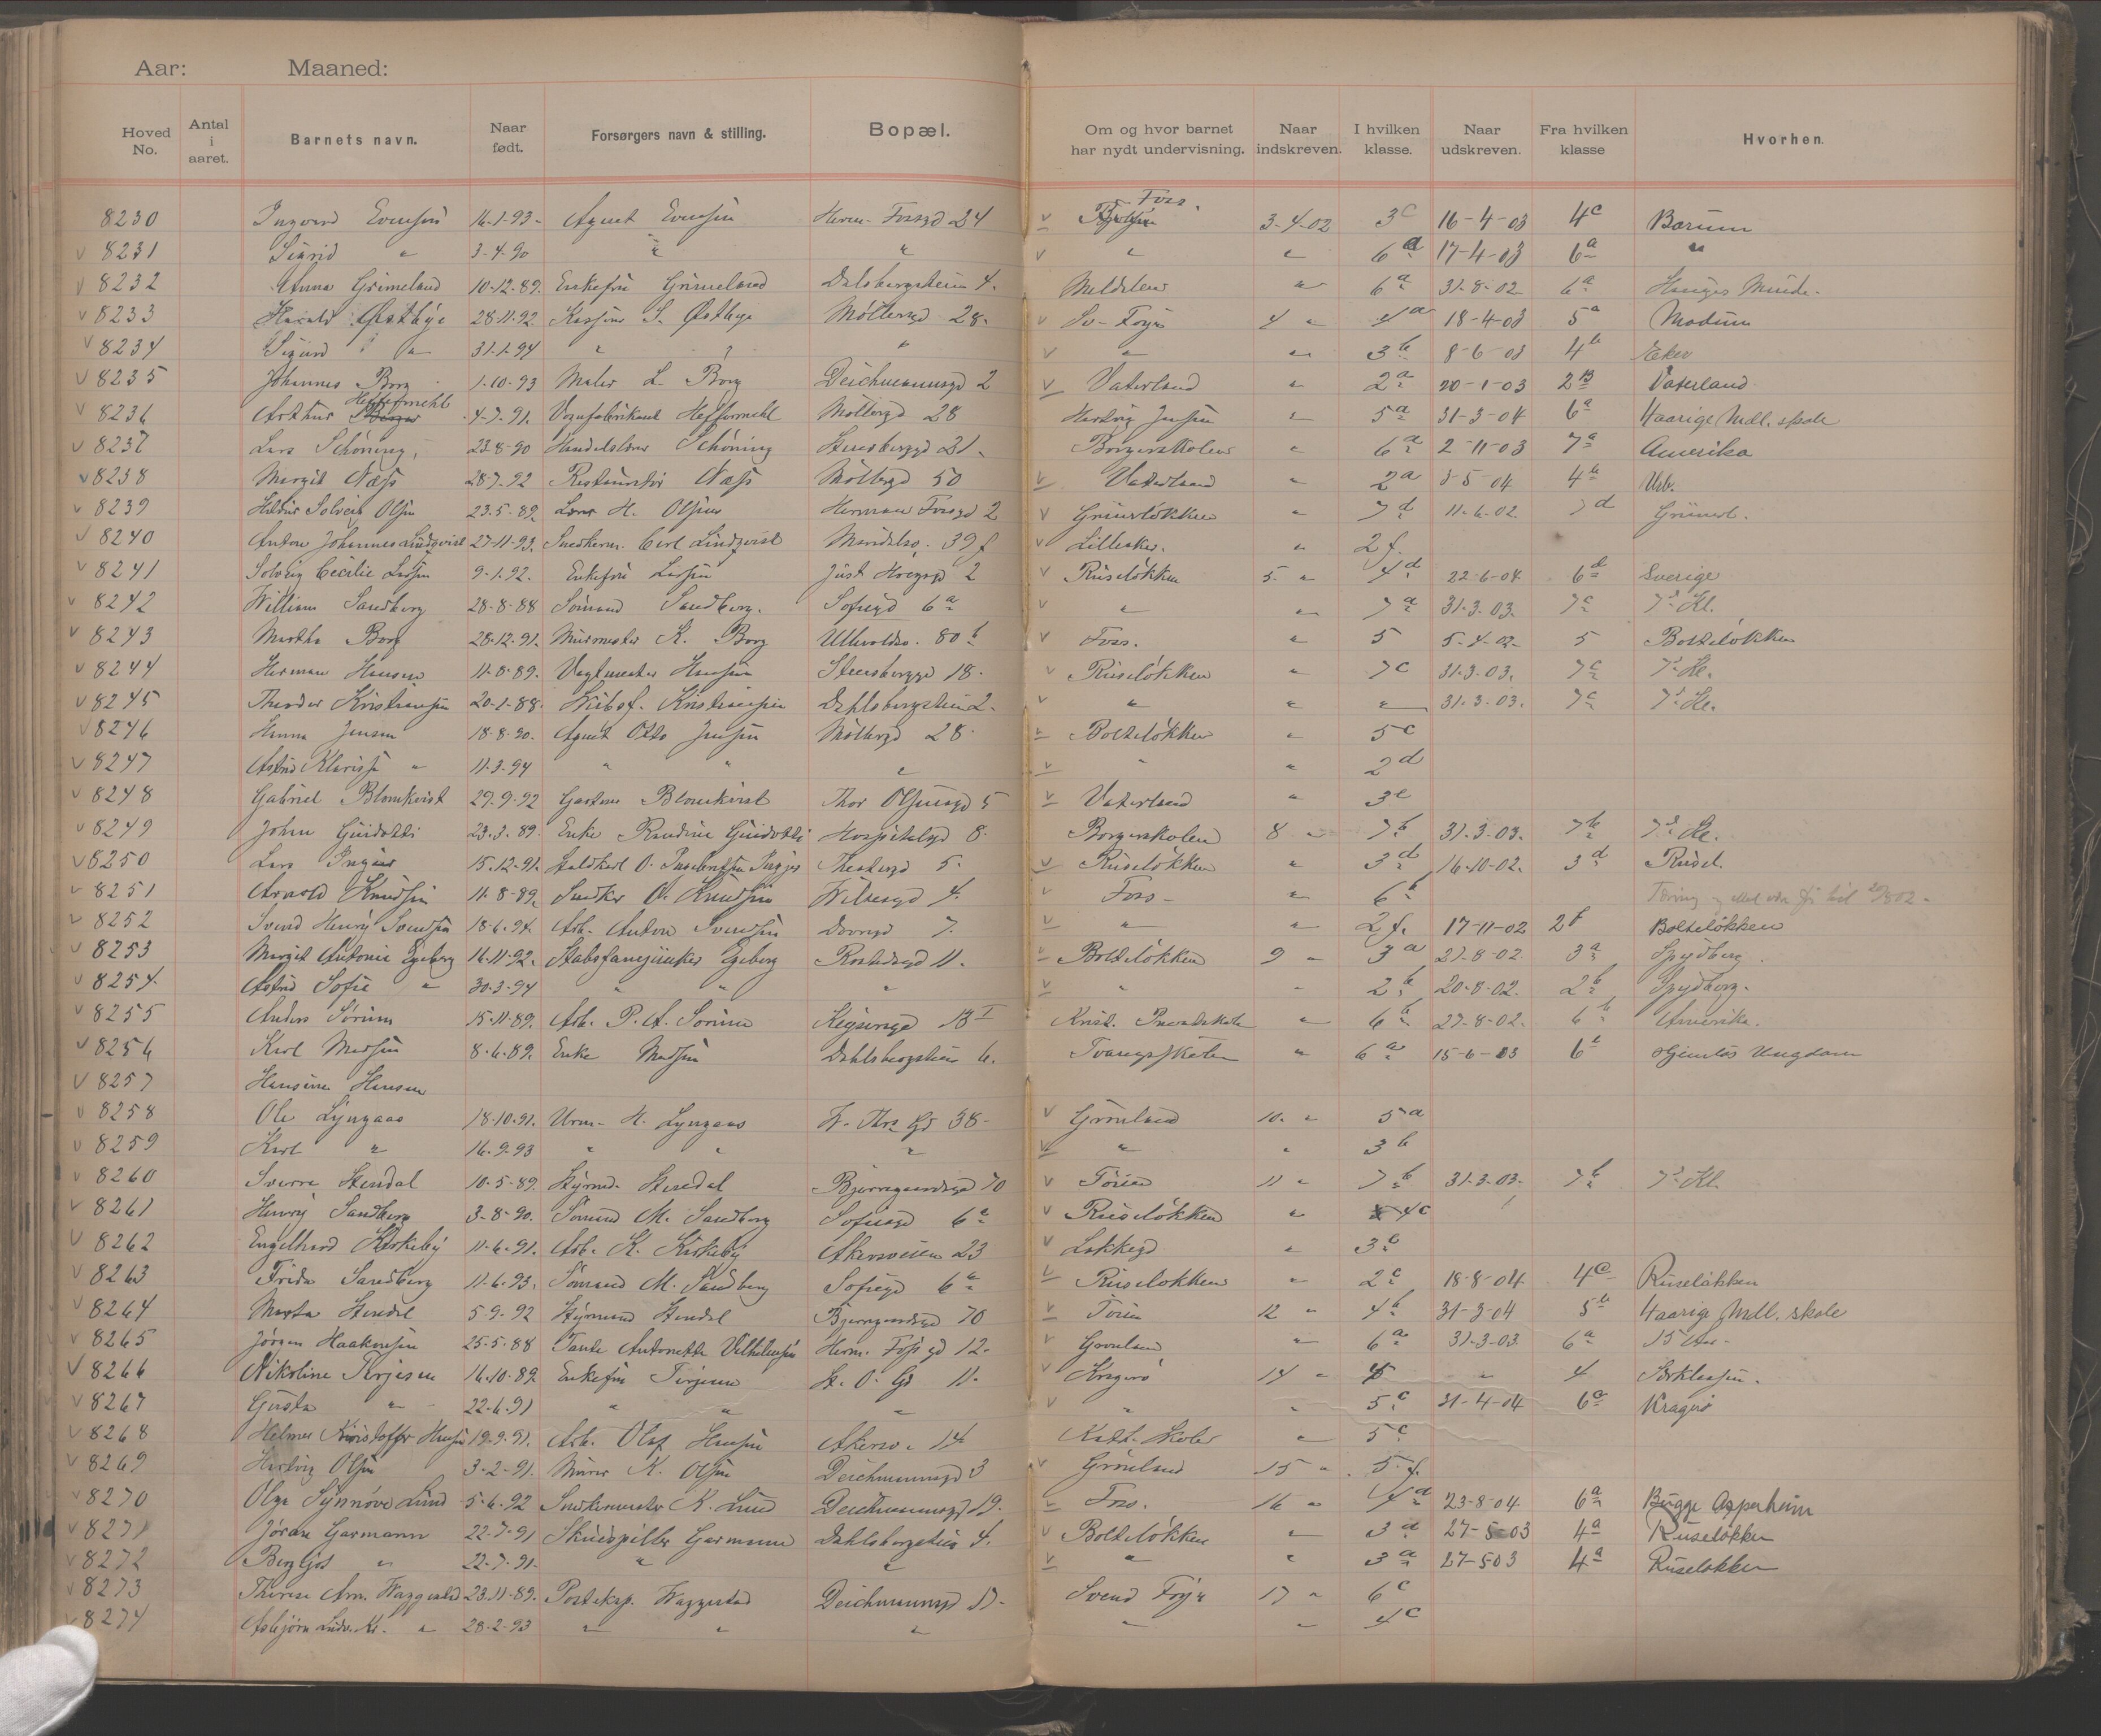 Aar: Maaned:
Hoved No. Antal i aaret. Barnets navn. Naar født. Forsørgers navn & stilling. Bopæl. Om og hvor barnet har nydt undervisning. Naar indskreven. I hvilken klasse. Naar udskreven. Fra hvilken klasse Hvorhen.
8230 Ingvard Evensen 16-1-93 Agent Evensen Herm. Fossgd 24 Foss. 3-4-02 3c 16-4-03 4c Bærum
8231 Sigrid " 3-4-90 " " " " 6a 17-4-03 6a "
8232 Anna Grimeland 10-12-89. Enkefru Grimeland Dahlsbergstien 4. " 6a 31-8-02 6a
8233 Harald Østbye 28.11.92. S. Østbye Möllergd 28. Sv. Foyn 4 " 4a 18-4-03 5a Modum
8234 Sigurd " 31-1-94 " " " " " 3b 8-6-03 4b Eker
8235 Johannes Borg 1-10-93 Maler L. Borg Deichmannsgd 2 Vaterland " 2a 20-1-03 2B Vaterland
8236 Arthur Heffermehl 4-7-91. Vognfabrikant Heffermehl Möllergd 28 Hertvig Jensen " 5a 31-3-04 6a Haarige Mdl. skole
8237 Lars Schöning 23-8-90 Schöning Stensberggd 21. Borgerskolen " 6a 2-11-03 7a Amerika
8238 Margit Næss 28-7-92 Næss Möllergd 50 Vaterland " 2a 3-5-04 4b Urb.
8239 Solveig Olsen 23.5-89. H. Olsen Herman Fossgd 2 Grünerløkken " 7d 11-6-02. 7d Grünerl.
8240 Anton Johannes Lindqvist 27-11-93. Snedkerm. Carl Lindqvist 39 f Lilleaker. " 2 f.
8241 Solveig Cecilie Larsen 9-1-92. Enkefru Larsen Just Hoegsgd 2 Ruseløkken 5. " 4d 22-6-04 6d Sverige
8242 William Sandberg 28-8-88 Sömand Sandberg. Sofiegd 6a " " 7a 31.3.03. 7a 7d Kl.
8243 Martha Borg 28-12-91. Murmester K. Borg Ullevoldsv. 80b Foss. " 5 5-4-02- 5 Bolteløkken
8244 Herman Hansen 11-8-89. Vagtmester Hansen Stensberggd 18. Ruseløkken " 7c 31.3.03. 7c 7d Kl.
8245 Theodor Kristiansen 20-1-88. Kristiansen Dahlsbergstien 2. " " " 31.3-03. 7c 7d Kl.
8246 Hanna Jensen 18-8-90. Agent Otto Jensen Möllergd 28. Bolteløkken " 5c
8247 Astrid Klarissa " 11-3-94 " " " " " 2d
8248 Gabriel Blomkvist 29-9-92 Gartner Blomkvist Thor Olsensgd 5 Vaterland " 3e
8249 Johan Guidotti 23-3-89. Enke Guidotti Hospitalsgd 8. Borgerskolen 8 " 7b 31-3-03. 7b 7d Kl.
8250 Lars 15.12-91. Theatergd 5. Ruseløkken " 3d 16-10-02. 3d Rusel.
8251 Arnold Knudsen 11-8-89. Snedker O. Knudsen Wilsesgd 4. Foss " 6b
8252 Svend Henry Svendsen 18-6-94. Arb. Anton Svendsen Dovregd 7. " " 2 f. 17-11-02 2f Bolteløkken
8253 Margit Antonie Egeberg 16-11-92. Stabsfanejunker Egeberg Rostedsgd 11. Bolteløkken 9 " 3a 27-8-02 3a Spydberg
8254 Astrid Sofie " 30-3-94 " " " " " 2b 20-8-02. 2b Spydberg.
8255 Anders Sörum 15-11-89. Arb. P. A. Sörum Keysersgd 13 I " 6b 27-8-02. 6b Amerika.
8256 Karl Madsen 8-6-89. Enke Madsen Dahlsbergstien 6. Tvangsskolen " 6a 15-6-03 6b Hjemløs Ungdom
8257 Hansine Hansen
8258 Ole Lyngaas 18-10-91. Urm. H. Lyngaas 38 Grönland 10. " 5a
8259 Karl " 16-9-93 " " " " " 3b
8260 Sverre Stendal 10-5-89. Styrmd. Stendal Bjerregaardsgd 70 Töien 11 " 7b 31.3-03. 7b 7d Kl.
8261 Henry Sandberg 3-8-90. Sömand M. Sandberg Sofiesgd 6a Ruseløkken " 4c
8262 Engelhard Kirkeby 11-6-91. Arb. K. Kirkeby Akersveien 23 Lakkegd " 3e
8263 Frida Sandberg 11-6-93. Sömand M. Sandberg Sofiegd 6a Ruseløkken " 2c 18-8-04 4c Ruseløkken
8264 Marta Stendal 5-9-92 Styrmand Stendal Bjerregaardsgd 70 Töien 12 " 4b 31-3-04 5b Haarige Mdl. skole
8265 Jörgen Haakonsen 25-5-88 Tante Antonette Vilhelmsen Herm. Fossgd 12. Grönland " 6a 31-3-03. 6a 15 Aar
8266 Nikoline 16-10-89. Enkefru St. O. Gd 11. Kragerö 14 " " 4
8267 Gusta " 22-6-91 " " " " " 5c 31-4-04 6a Kragerø
8268 Helmer Kristoffer Hansen 19-9-91. Arb. Olaf Hansen Akersv. 14 Kath. Skoler " 5c
8269 Hertvig Olsen 3-2-91. Murer K. Olsen Deichmannsgd 3 Grönland 15 " 5 f.
8270 Olga Synnöve Lund 5-6-92 Snekermester K. Lund Deichmannsgd 19. Foss. 16 " 4d 23-8-04 6a Bugge Asperheim
8271 Jörare Garmann 22-7-91 Skuespiller Garmann Dahlsbergstien 4. Bolteløkken " 3d 27-5-03 4a Ruseløkken
8272 Bergljot " 22-7-91. " " " " 3a 27-503 4a Ruseløkken
8273 Therese Waggestad 23.11-89. Posteksp. Waggestad Deichmannsgd 17. Svend Foyn 17 " 6c
8274 Asbjörn " 28-2-93 " " " " " 4c